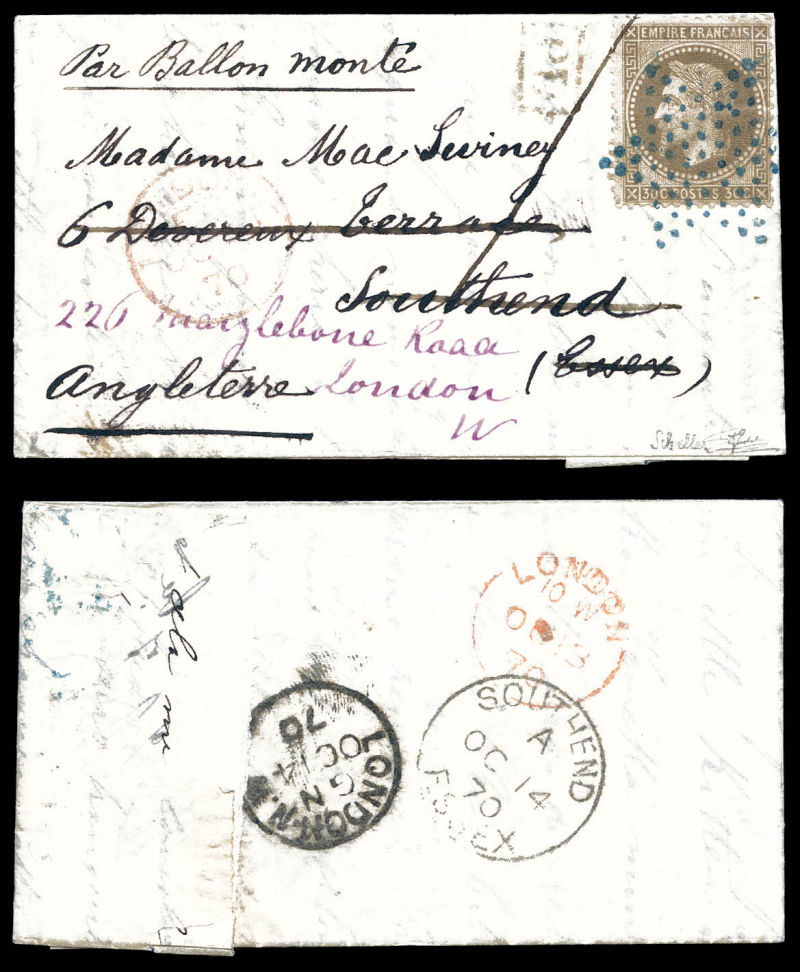 Par Ballon monté
EMPIRE FRANÇAIS
30C POSTES 30C
Madame Mac Swiney
6 Devereux Terrace
Southend
226 Marylebone Road
(Essex)
Angleterre London
W
LONDON
10 W
OC 13
70
SOUTHEND
A
OC 14
70
ESSEX
LONDON.N.W
G N
OC 14
70